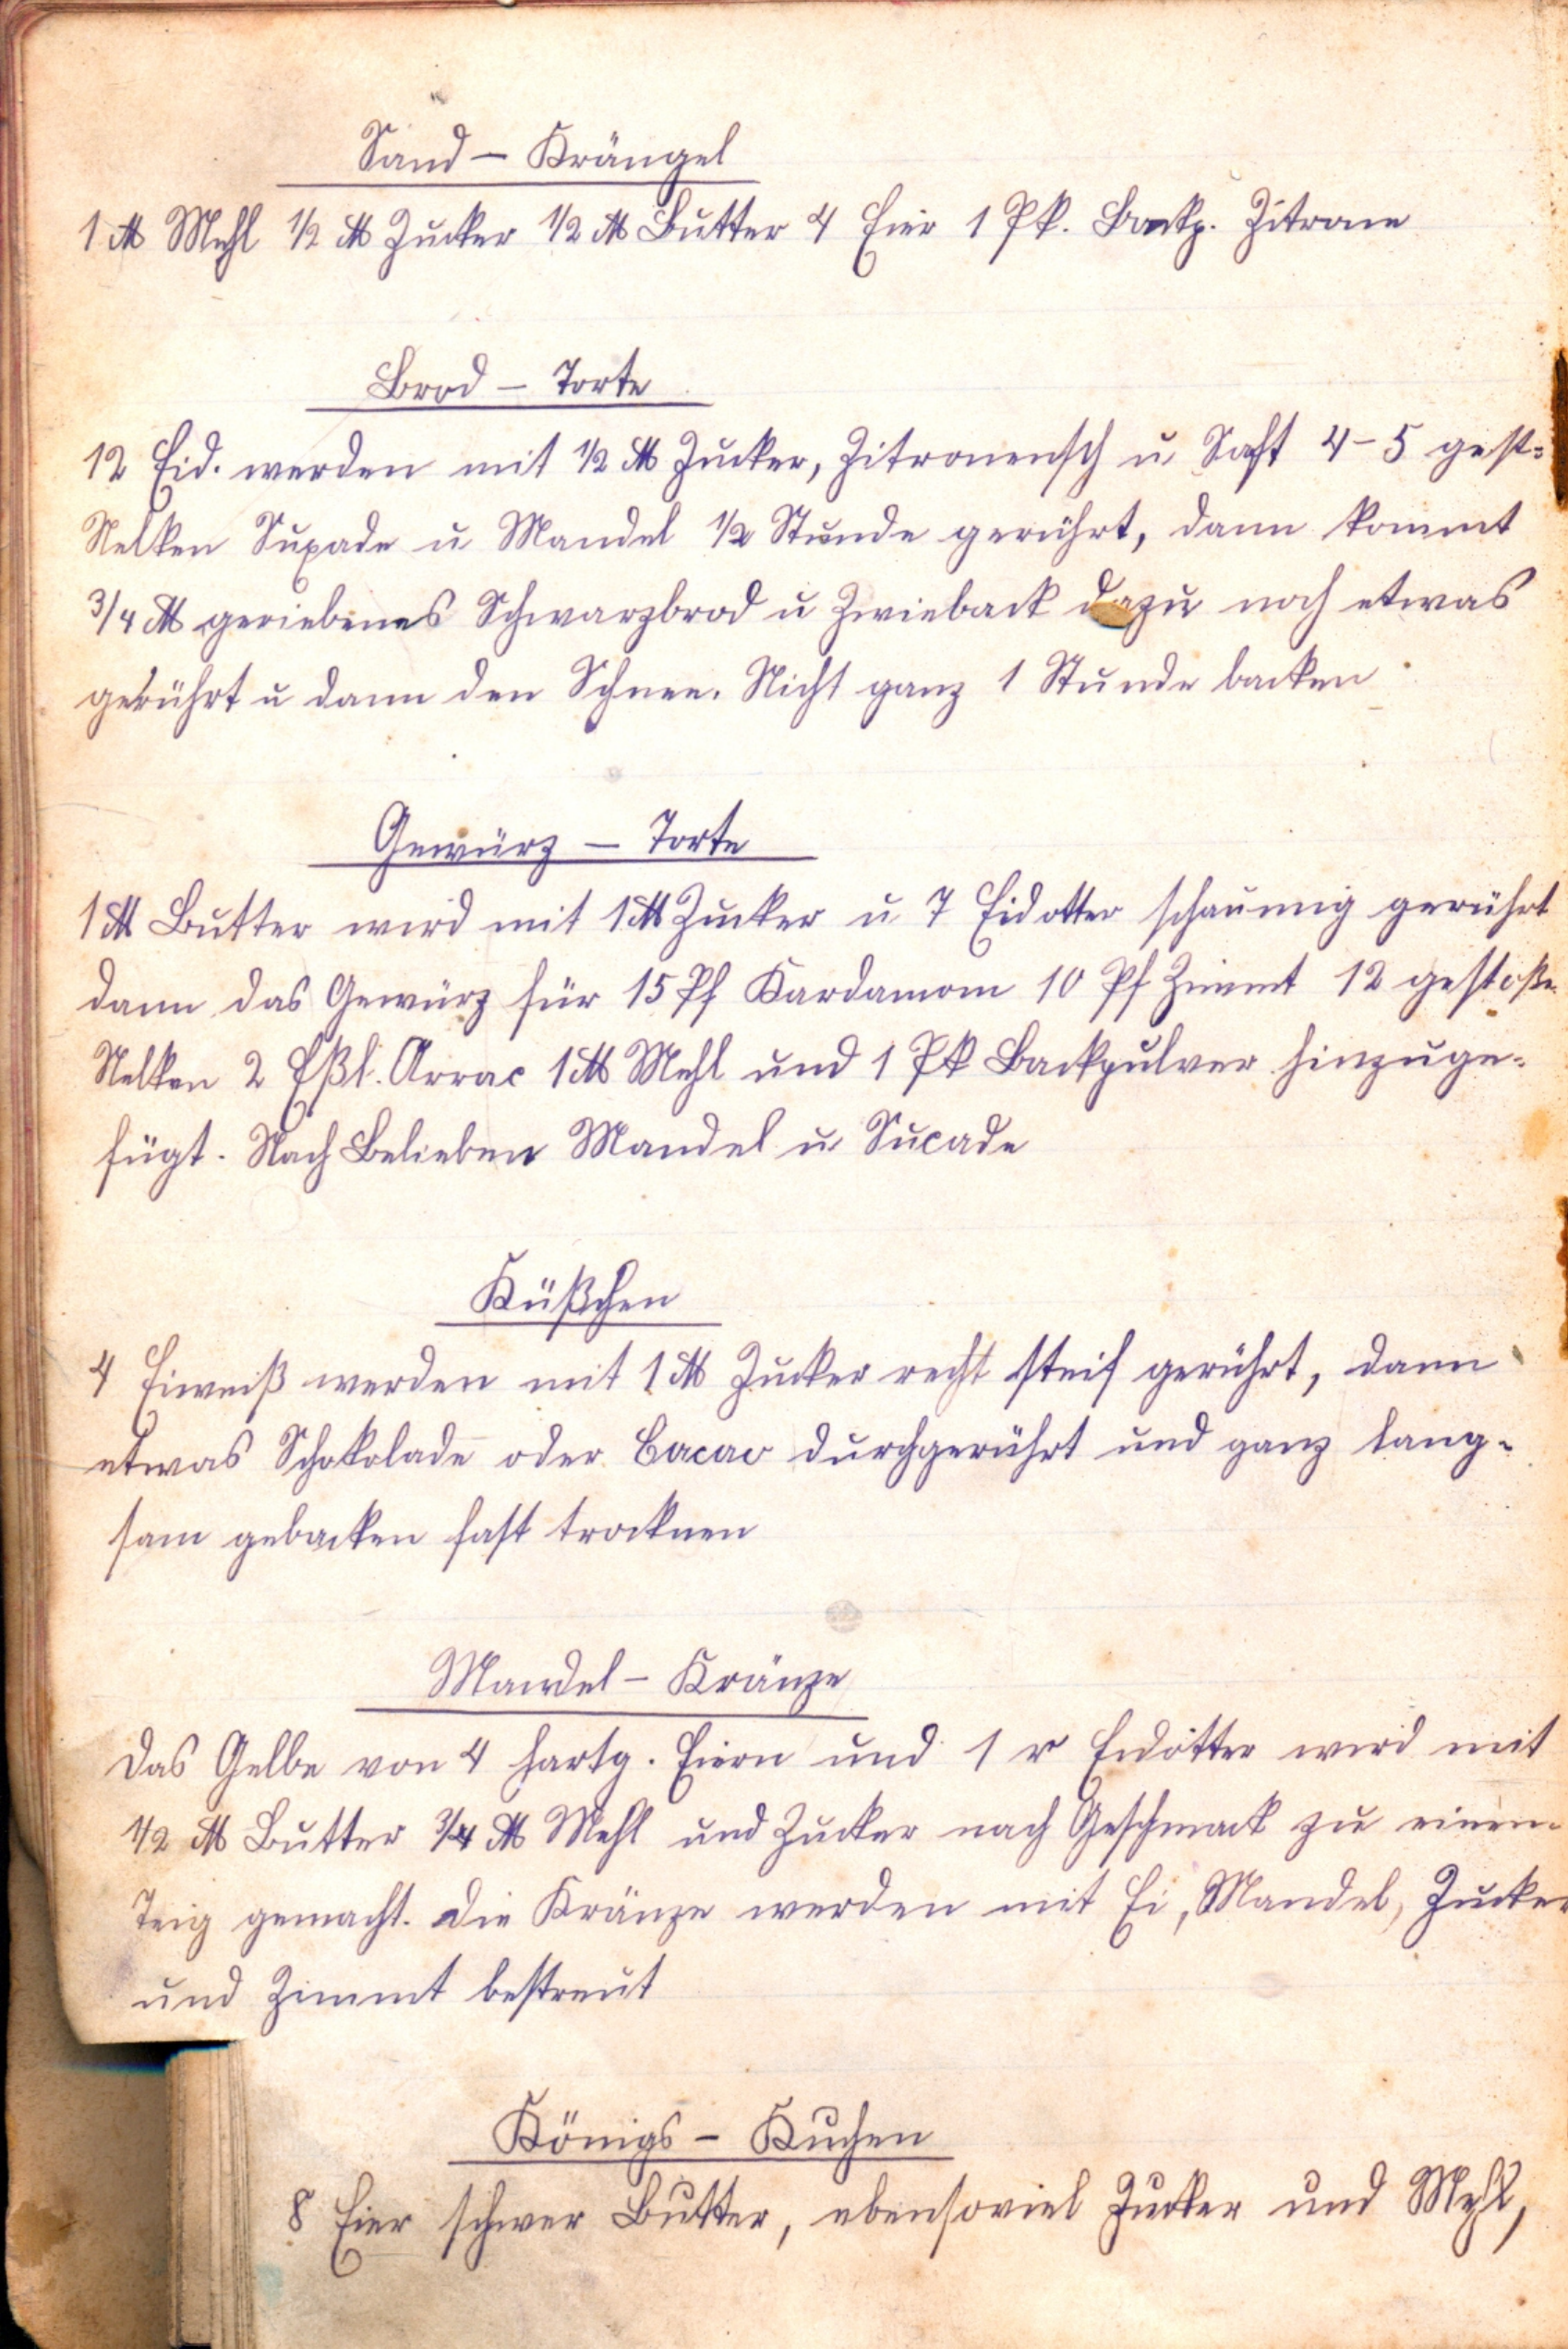 Sand - Krängel
1 ℔ Mehl ½ ℔ Zucker ½ ℔ Butter 4 Eier 1 Pk. Backp. Zitrone
Brod - Torte
12 Eid. werden mit ½ ℔ Zucker, Zitronensch u Saft 4-5 gest=
Nelken Suxade u Mandel ½ Stunde gerührt, dann kommt
3/4 ℔ geriebenes Schwarzbrod u Zwieback dazu noch etwas
gerührt u dann den Schnee. Nicht ganz 1 Stunde backen
Gewürz - Torte
1 ℔ Butter wird mit 1 ℔ Zucker u 7 Eidotter schaumig gerührt
dann das Gewürz für 15 Pf Kardamom 10 Pf Zimmt 12 gestoße
Nelken 2 Eßl. Arrac 1 ℔ Mehl und 1 Pk Backpulver hinzuge-
fügt. Nach Belieben Mandel u Sucade
Küßchen
4 Eiweiß werden mit 1 ℔ Zucker recht steif gerührt, dann
etwas Schokolade oder Cacao durchgerührt und ganz lang-
sam gebacken fast trocknen
Mandel - Kränze
Das Gelbe von 4 hartg. Eiern und 1 r Eidotter wird mit
1/2 ℔ Butter 3/4 ℔ Mehl und Zucker nach Geschmack zu einem
Teig gemacht. Die Kränze werden mit Ei, Mandel, Zucker
und Zimmt bestreut
Königs - Kuchen
8 Eier schwer Butter, ebensoviel Zucker und Mehl,